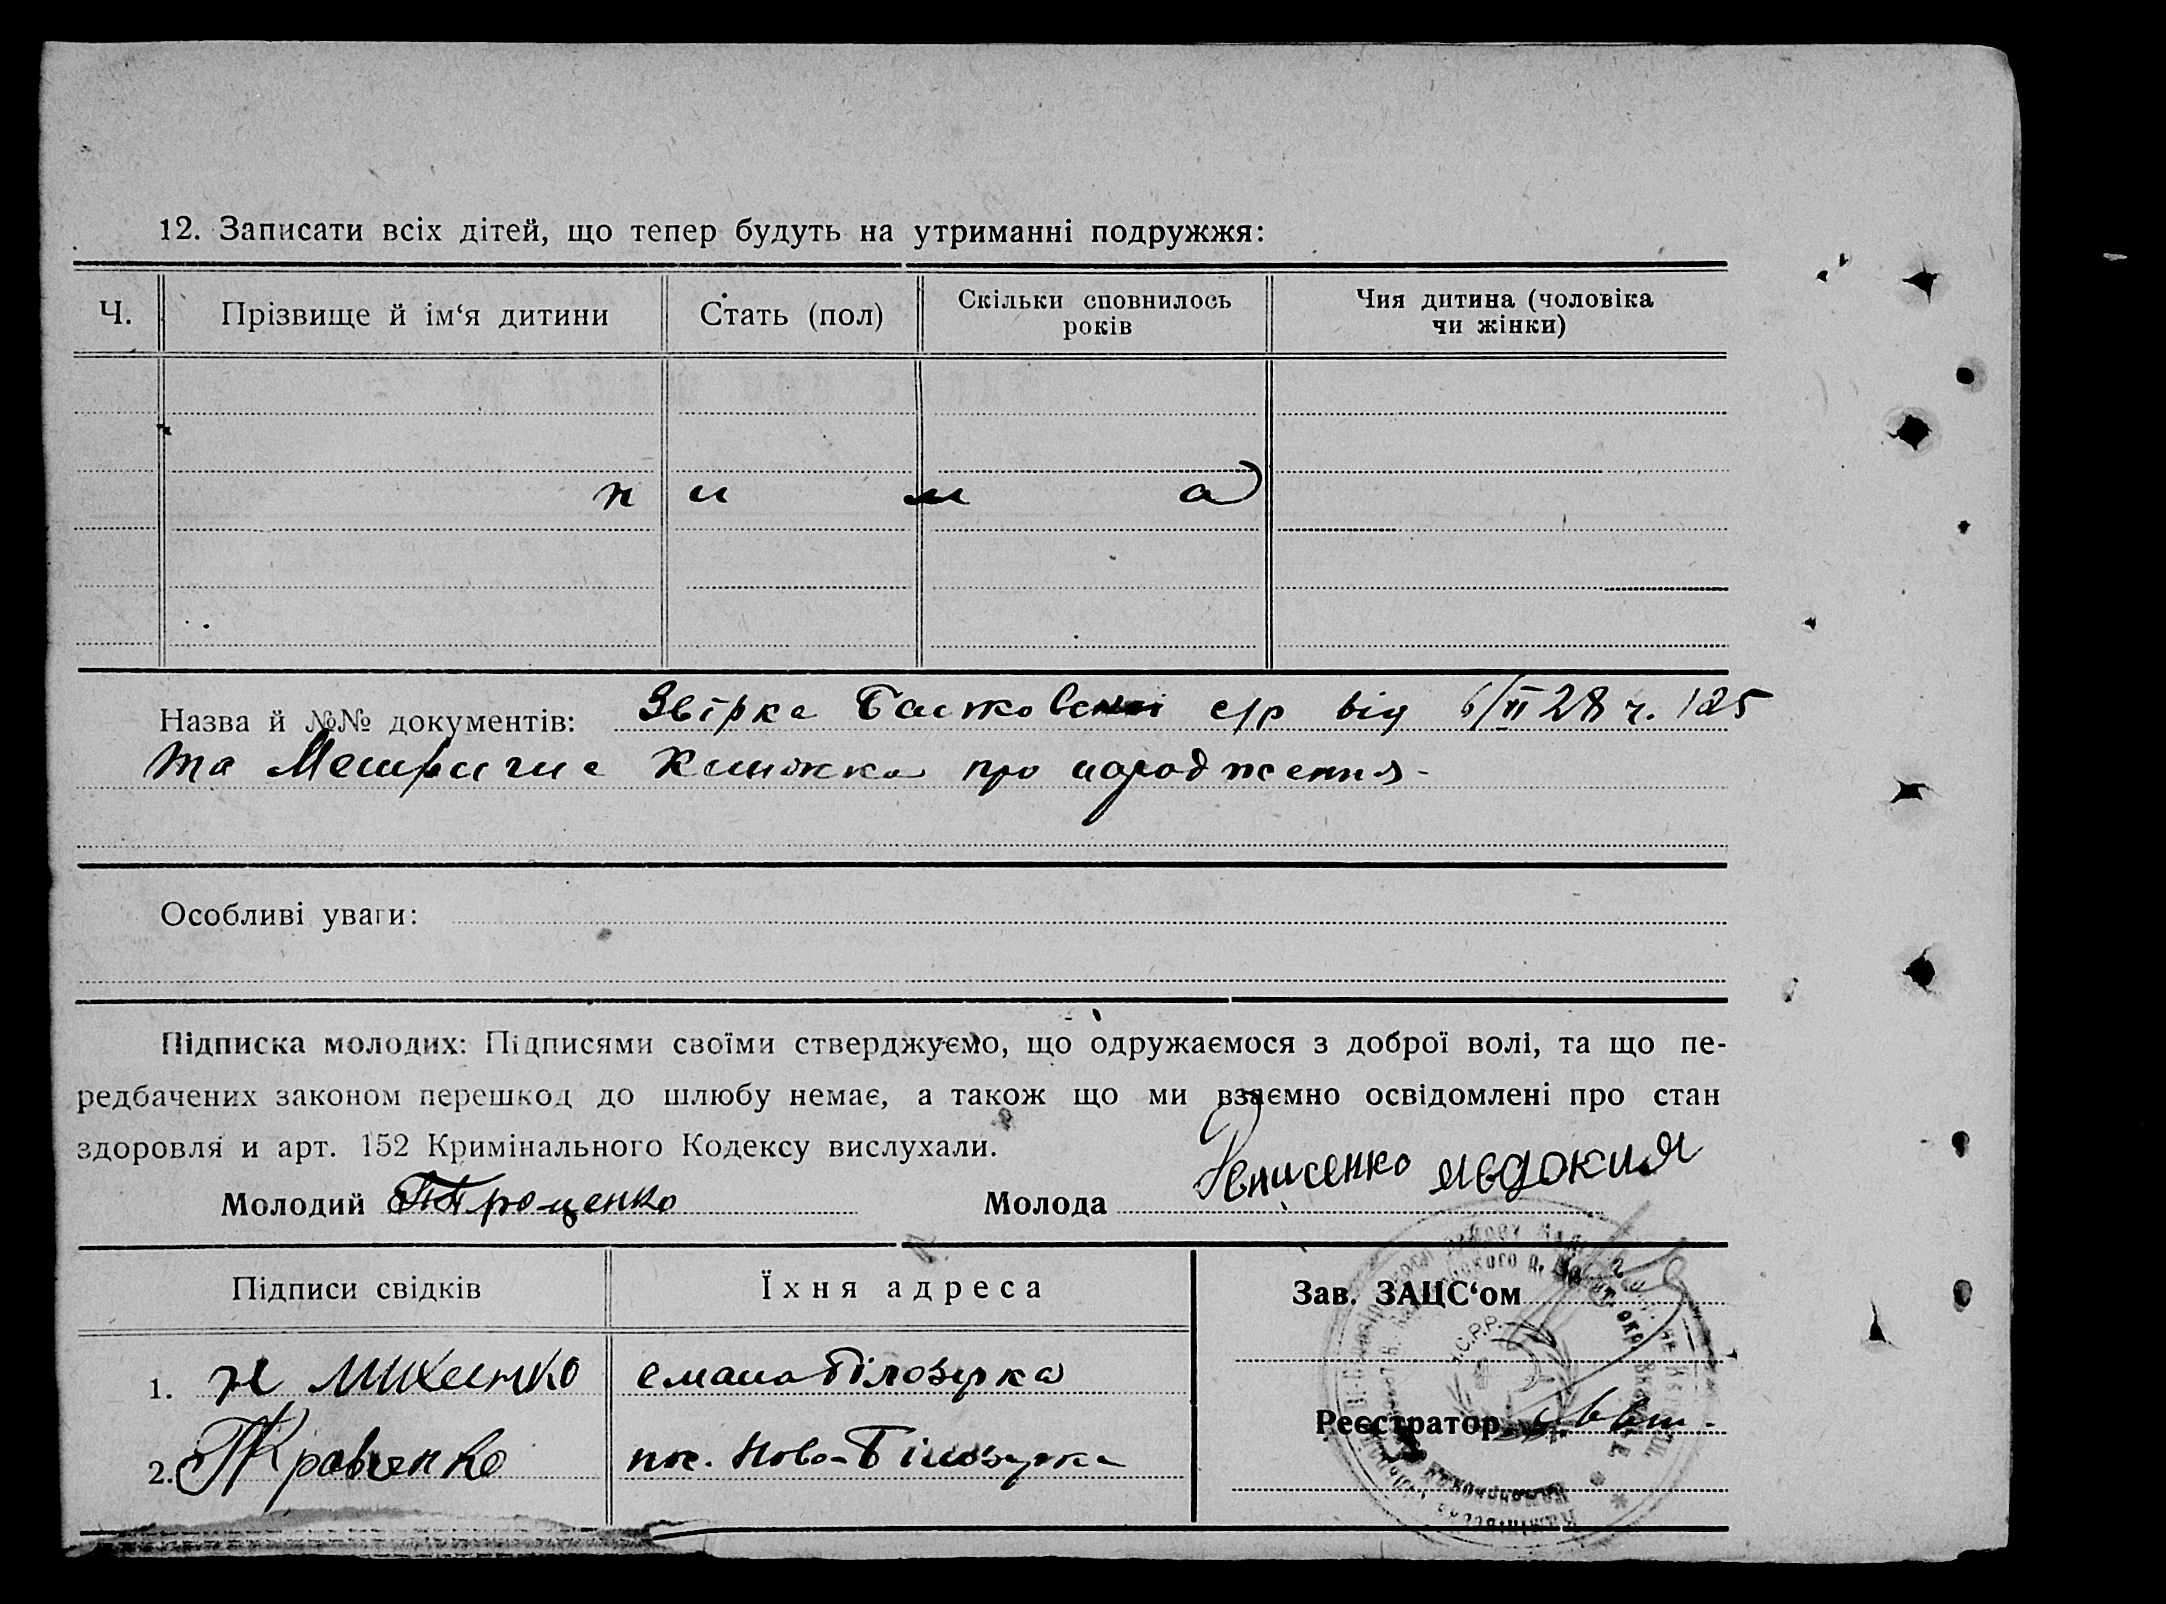 12. Записати всіх дітей, що тепер будуть на утриманні подружжя:
Ч. Прізвище й ім‘я дитини Стать (пол) Скільки сповнилось років Чия дитина (чоловіка чи жінки)
н и м а
Назва й №№ документів: Звірка с/р від 6/VI 28 ч. 125
та Метричне Книжка про народження -
Особливі уваги:
Підписка молодих: Підписями своїми стверджуємо, що одружаємося з доброї волі, та що пе-
редбачених законом перешкод до шлюбу немає, а також що ми взаємно освідомлені про стан
здоровля и арт. 152 Кримінального Кодексу вислухали.
Молодий Проценко Молода Денисенко Явдокия
Підписи свідків Їхня адреса Зав. ЗАЦС‘ом
1. Михенко Білозірка
Реєстратор
2. Кравченко Ново-Білозірка